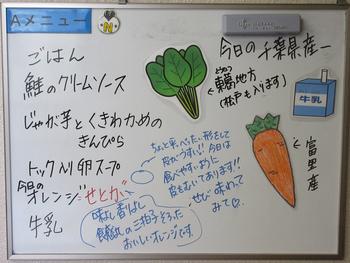 Aメニュー
N
ごはん
鮭のクリームソース
じゃが芋とくきわかめの
きんぴら
トック入り卵スープ
今日の
オレンジ:せとか
牛乳
今日の千葉県産ー
とうかつ
東葛地方
(松戸も入ります)
牛乳
富里産
ちょっと平べったい形をして
皮がうすい!!今日は
食べやすいように
皮をむいてあります!!
ぜひ味わって
みて♡
味よし香りよし
食感よしの三拍子そろった
おいしいオレンジです